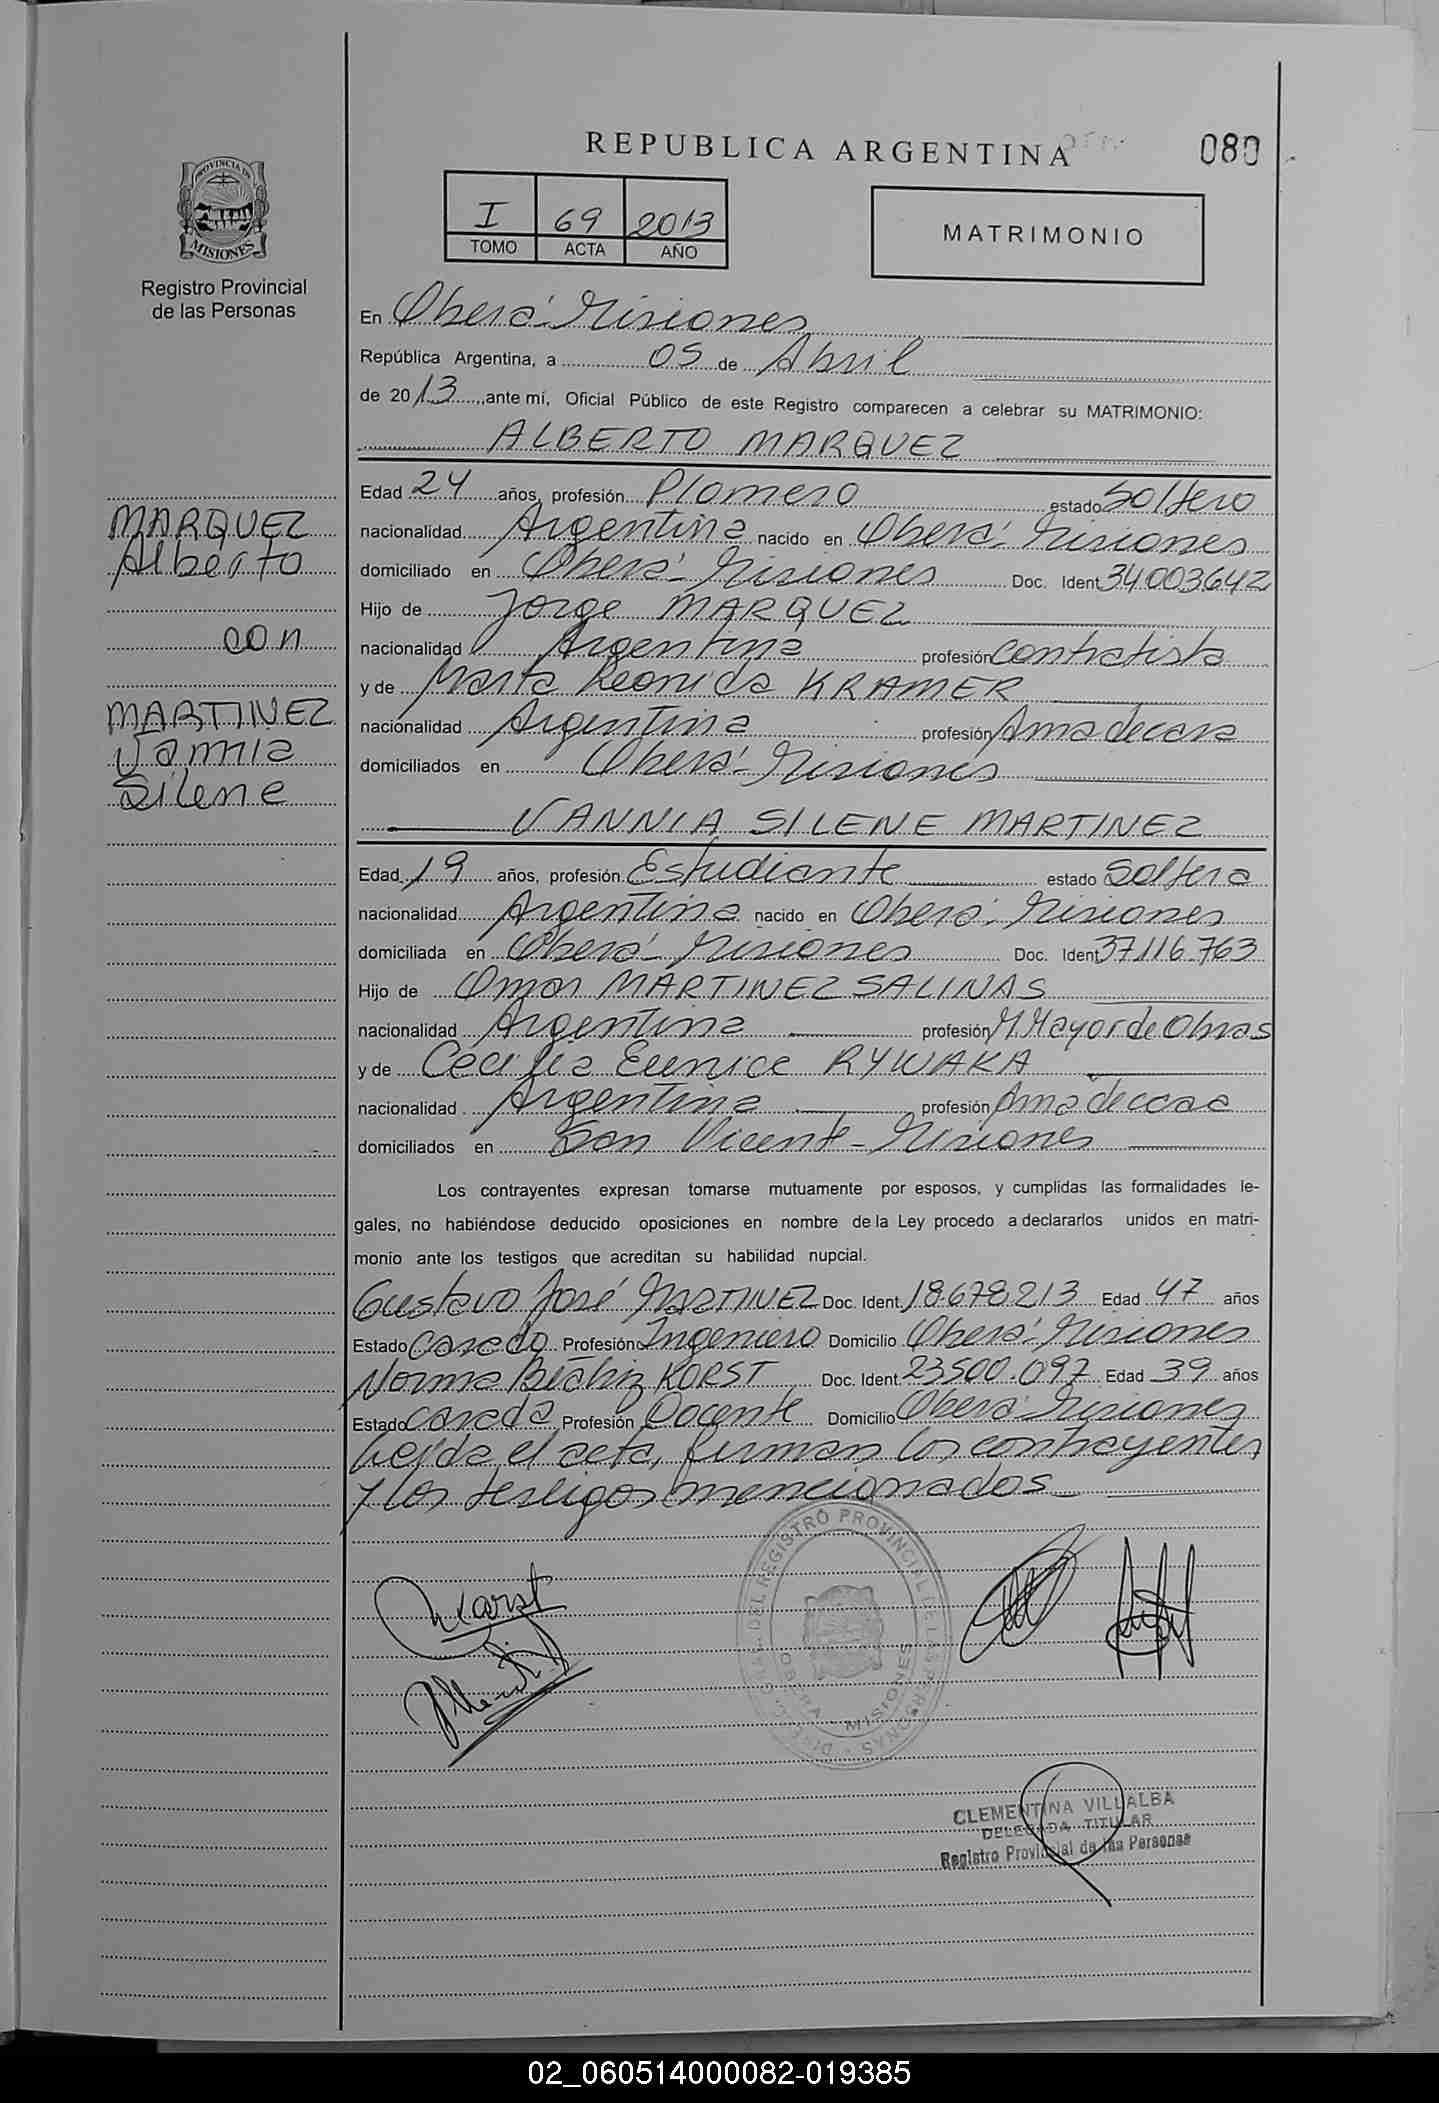 REPUBLICA ARGENTINA
080
PROVINCIA DE
MISIONES
Registro Provincial
de las Personas
I 69 2013
TOMO ACTA AÑO
MATRIMONIO
En Oberá-Misiones
República Argentina, a 05 de Abril
de 2013, ante mí, Oficial Público de este Registro comparecen a celebrar su MATRIMONIO:
ALBERTO MARQUEZ
MARQUEZ
Alberto
con
MARTINEZ
Vannia
Silene
Edad 24 años, profesión Plomero estado Soltero
nacionalidad Argentina nacido en Oberá-Misiones
domiciliado en Oberá-Misiones Doc. Ident 34003642
Hijo de Jorge MARQUEZ
nacionalidad Argentina profesión contratista
y de Marta Leonida KRAMER
nacionalidad Argentina profesión Ama de casa
domiciliados en Oberá-Misiones
VANNIA SILENE MARTINEZ
Edad 19 años, profesión Estudiante estado Soltera
nacionalidad Argentina nacido en Oberá-Misiones
domiciliada en Oberá-Misiones Doc. Ident 37.116.763
Hijo de Omar MARTINEZ SALINAS
nacionalidad Argentina profesión M.Mayor de Obras
y de Cecilia Eunice RYWAKA
nacionalidad Argentina profesión Ama de casa
domiciliados en San Vicente-Misiones
Los contrayentes expresan tomarse mutuamente por esposos, y cumplidas las formalidades le-
gales, no habiéndose deducido oposiciones en nombre de la Ley procedo a declararlos unidos en matri-
monio ante los testigos que acreditan su habilidad nupcial.
Gustavo José MARTINEZ Doc. Ident. 18.678.213 Edad 47 años
Estado casado Profesión Ingeniero Domicilio Oberá-Misiones
Norma Beatriz KORST Doc. Ident. 23500.097 Edad 39 años
Estado casada Profesión Docente Domicilio Oberá-Misiones
Leída el acta, firman los contrayentes
y los testigos mencionados
DIREC. GRAL. DEL REGISTRO PROVINCIAL DE LAS PERSONAS
OBERA - MISIONES
CLEMENTINA VILLALBA
DELEGADA TITULAR
Registro Provincial de las Personas
02_060514000082-019385